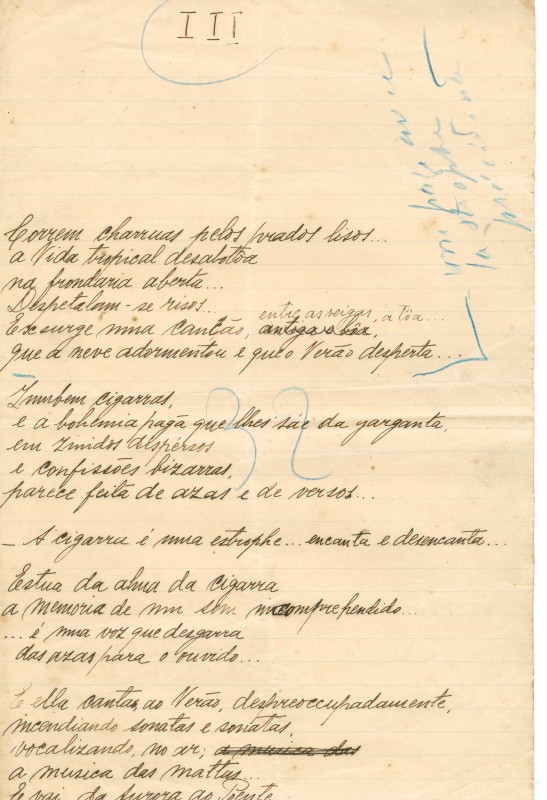 III
uma page avec
la strophe
précédente
Correm charruas pelos prados lisos...
a Vida tropical desabotôa
na frondaria aberta...
Despetalam-se risos...
entre as veigas, a tôa...
Exsurge uma canção, antiga e bôa,
que a neve adormentou e que o Verão desperta...
32
Zumbem cigarras,
e a bohemia pagã que lhes sáe da garganta,
em zinidos dispersos
e confissões bizarras,
parece feita de azas e de versos...
– A cigarra é uma estrophe... encanta e desencanta...
Estua da alma da cigarra
a memoria de um som incomprehendido...
... é uma voz que desgarra
das azas para o ouvido...
E ella canta ao Verão, despreoccupadamente,
incendiando sonatas e sonatas,
vocalizando, no ar, a musica das
a musica das mattas...
E vai, da Aurora ao Poente